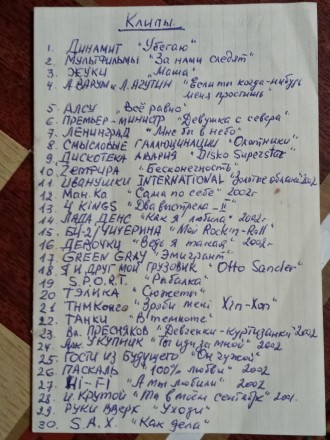 Клипы.
1. Динамит "Убегаю"
2. Мультфильмы "За нами следят"
3. Жуки "Маша"
4. А. Варум и Л. Агутин "Если ты когда-нибудь
меня простишь"
5. Алсу "Всё равно"
6. Премьер-министр "Девушка с севера"
7. Ленинград "Мне бы в небо"
8. Смысловые галлюцинации "Охотники"
9. Дискотека Авария "Disko Superstar"
10. Земфира "Бесконечность"
11. Иванушки International "Золотые облака" 2002
12. Ман.Ка "Сама по себе" 2002г
13. 4 Kings "Два выстрела-II"
14. Лада Денс "Как я любила" 2002г.
15. Би-2/Чичерина "Мой Rock-n-Roll"
16. Девочки "Ведь я такая" 2002г.
17. Green Gray "Эмигрант"
18. Я и друг мой грузовик "Otto Sander"
19. S.P.O.R.T. "Рыбалка"
20. Тэлика "Сюжеты"
21. ТНМКонго "Зроби мені Хіп-Хоп"
22. Танки "В темноте"
23. Вл. Пресняков "Девченки-куртизанки" 2002
24. Арк. Укупник "Ты изуза мной" 2002
25. Гости из будущего "Он чужой"
26. Паскаль "100% любви" 2002
27. Hi-Fi "А мы любили" 2002
28. И. Крутой "То в моём сентябре" 2001.
29. Руки Вверх "Уходи"
30. S.A.X. "Как дела"